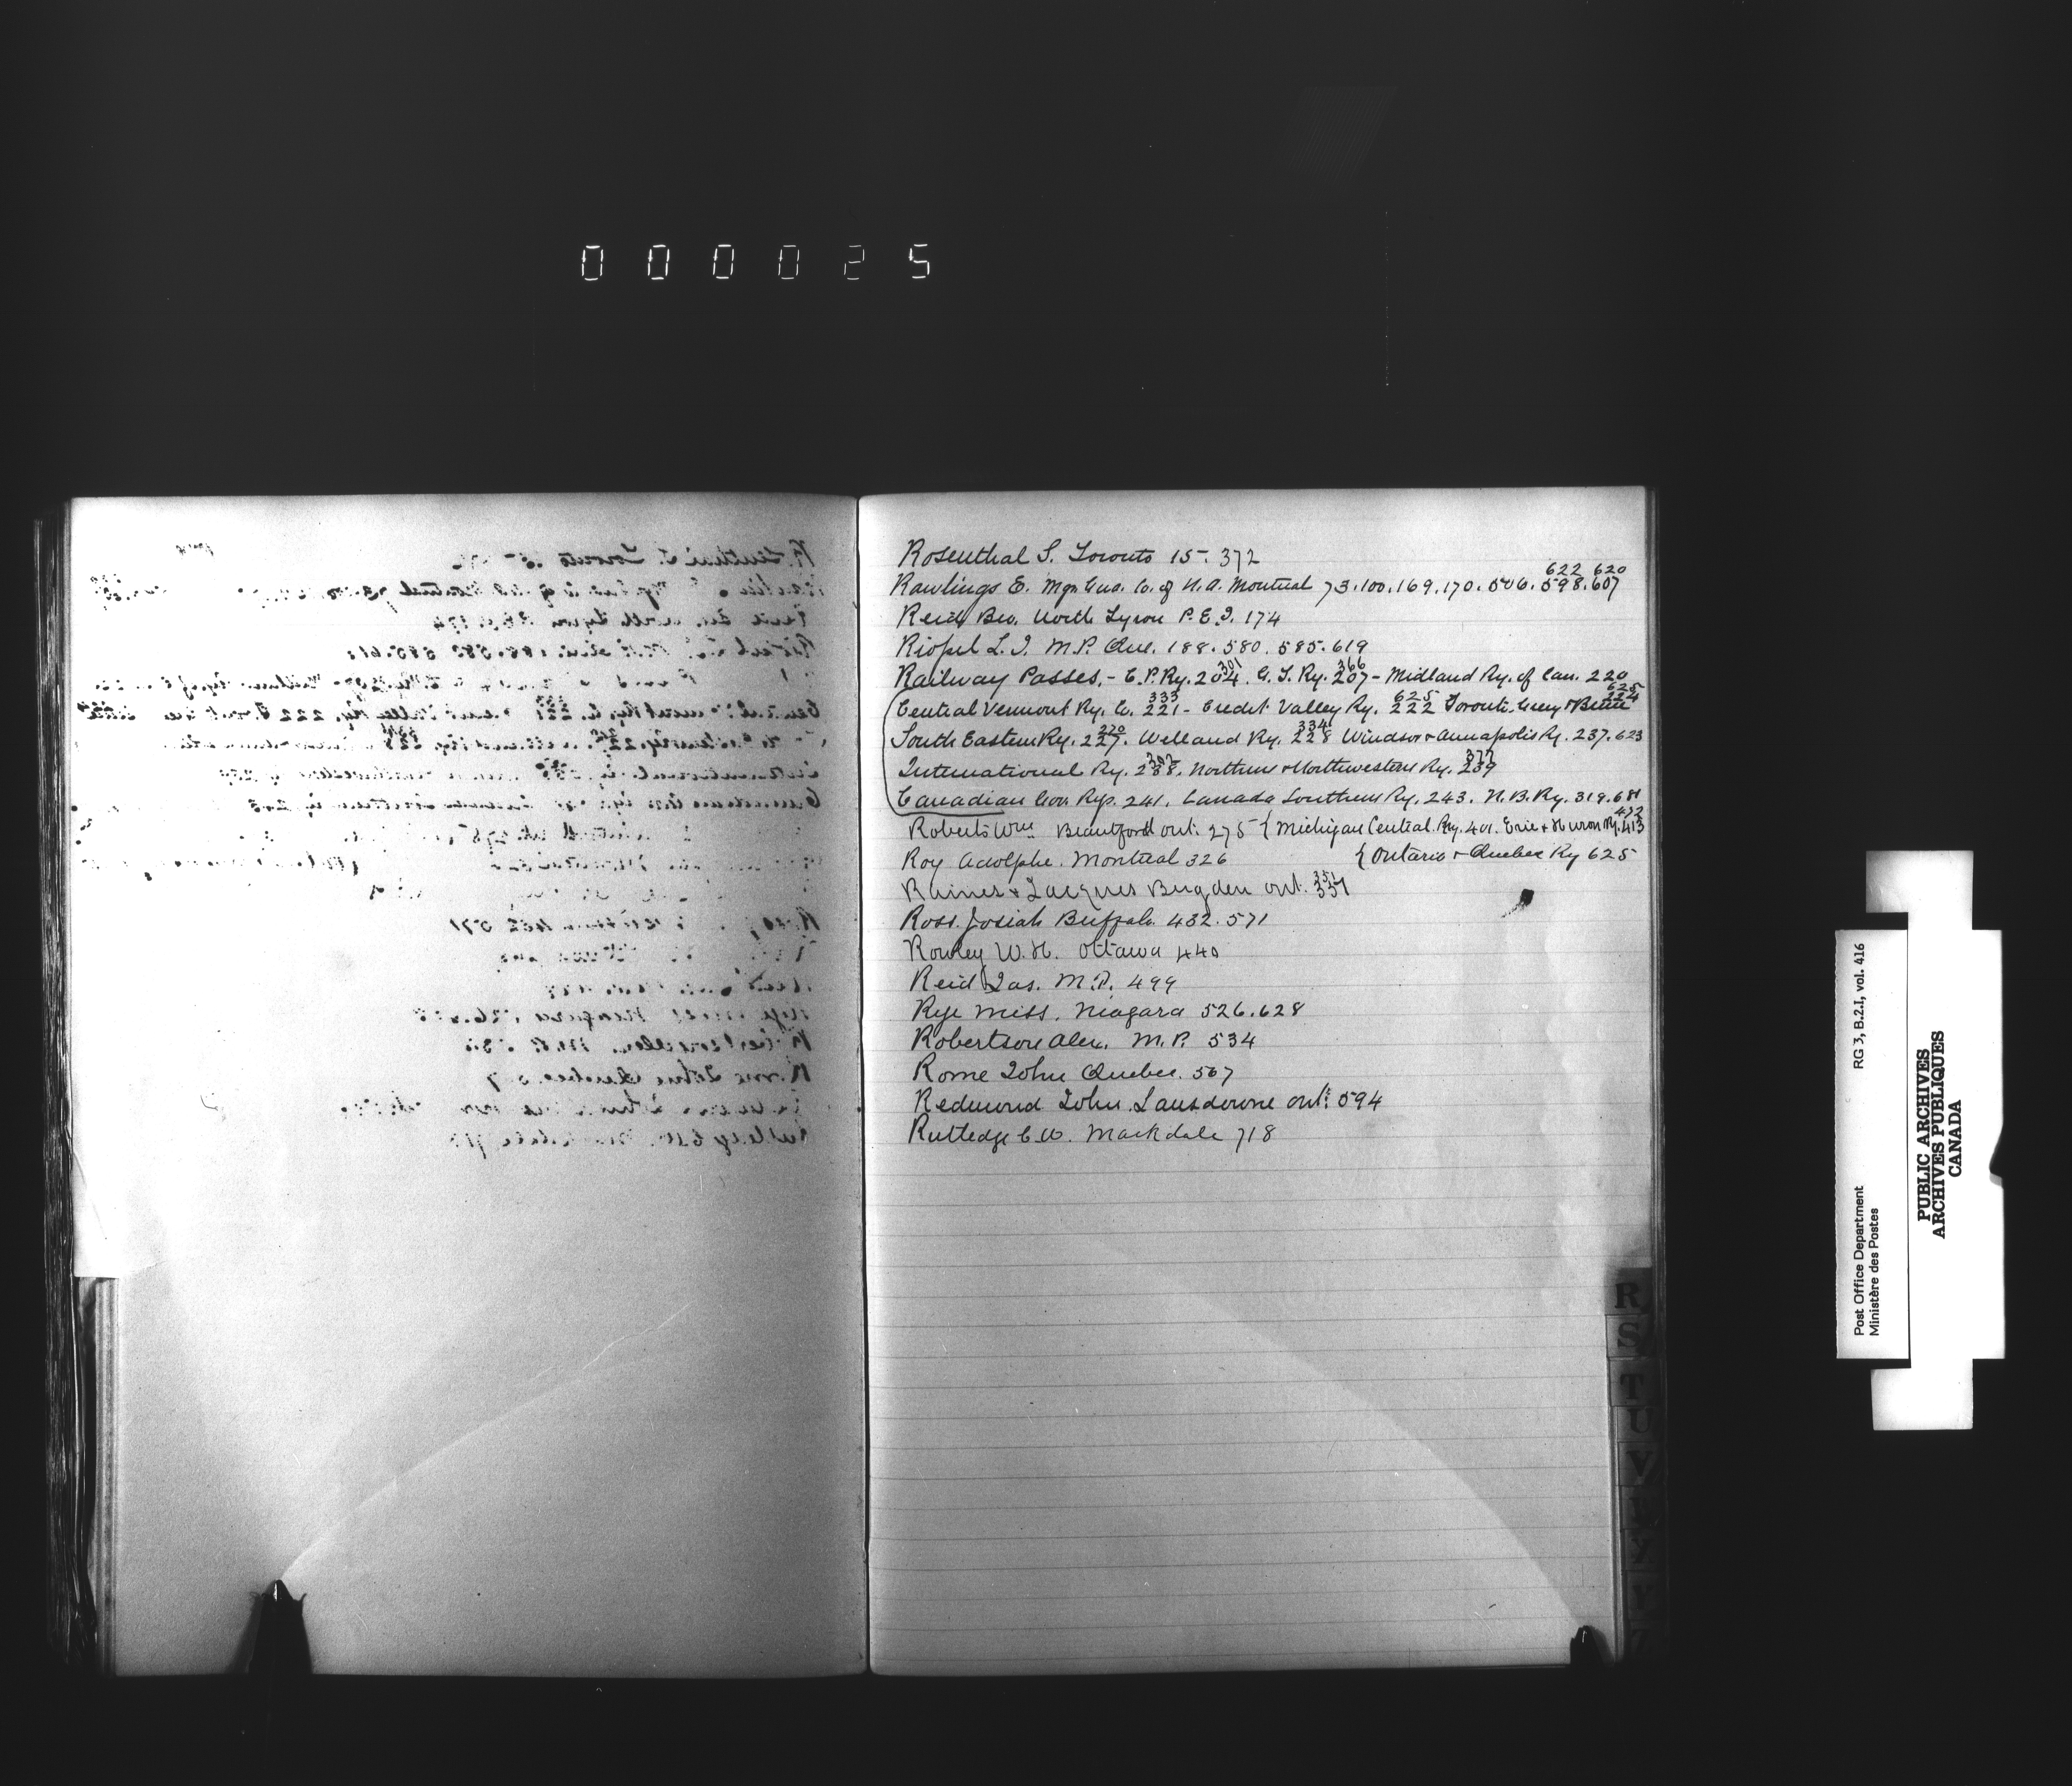 000025
Rosenthal S. Toronto 15. 372
622 620
Rawlings E. Mgr. Gua. Co. of N. A. Montreal 73. 100. 169. 170. 506. 598. 607
Reid Bro. North Lyron P. E. I. 174
Riopel L. J. M. P. Que. 188. 580. 585. 619
301 366
Railway Passes. - C. P. Ry. 204. G. T. Ry. 207 - Midland Ry. of Can. 220
333 625 625
Central Vermont Ry. Co. 221 - Credit Valley Ry. 222 Toronto. Grey & Bruce 224
334
South Eastern Ry. 227. Welland Ry. 228 Windsor & Annapolis Ry. 237. 623
377
International Ry. 238. Northern & Northwestern Ry. 239
Canadian Gov. Rys. 241. Canada Southern Ry. 243. N. B. Ry. 319. 681
432
Roberts Wm Brantford Ont. 275 { Michigan Central. Ry. 401. Erie & Huron Ry. 413
Roy Adolphe. Montreal 326 { Ontario & Quebec Ry 625
351
& Jacques Bugden Ont. 337
Ross. Josiah Buffalo. 432. 571
Rowley W. H. Ottawa 440
Reid Jas. M. P. 499
Rye Miss. Niagara 526. 628
Robertson Alex. M. P. 534
Rome John Quebec. 567
Redmond John. Lansdowne Ont. 594
Rutledge C. W. Markdale 718
R
S
T
U
V
W
Y
Post Office Department
Ministère des Postes
RG 3, B.2.I, vol. 416
PUBLIC ARCHIVES
ARCHIVES PUBLIQUES
CANADA